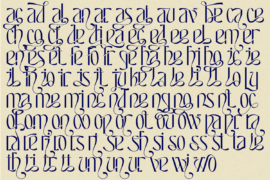 ac ad al an ar as at au av be ca ce
ch co ct de di ea ec ed ee el em er
en es et fe fo fr ge ha he hi ho ic ie
il in io ir is it ke la le li ll lo ly
ma me mi ne nd ne ng no ns nt oc
of om on oo or os ot ou ow pa pr ra
ra re ri ro rs rt se sh si so ss st ta te
th ti tt um un ur ve wi wo